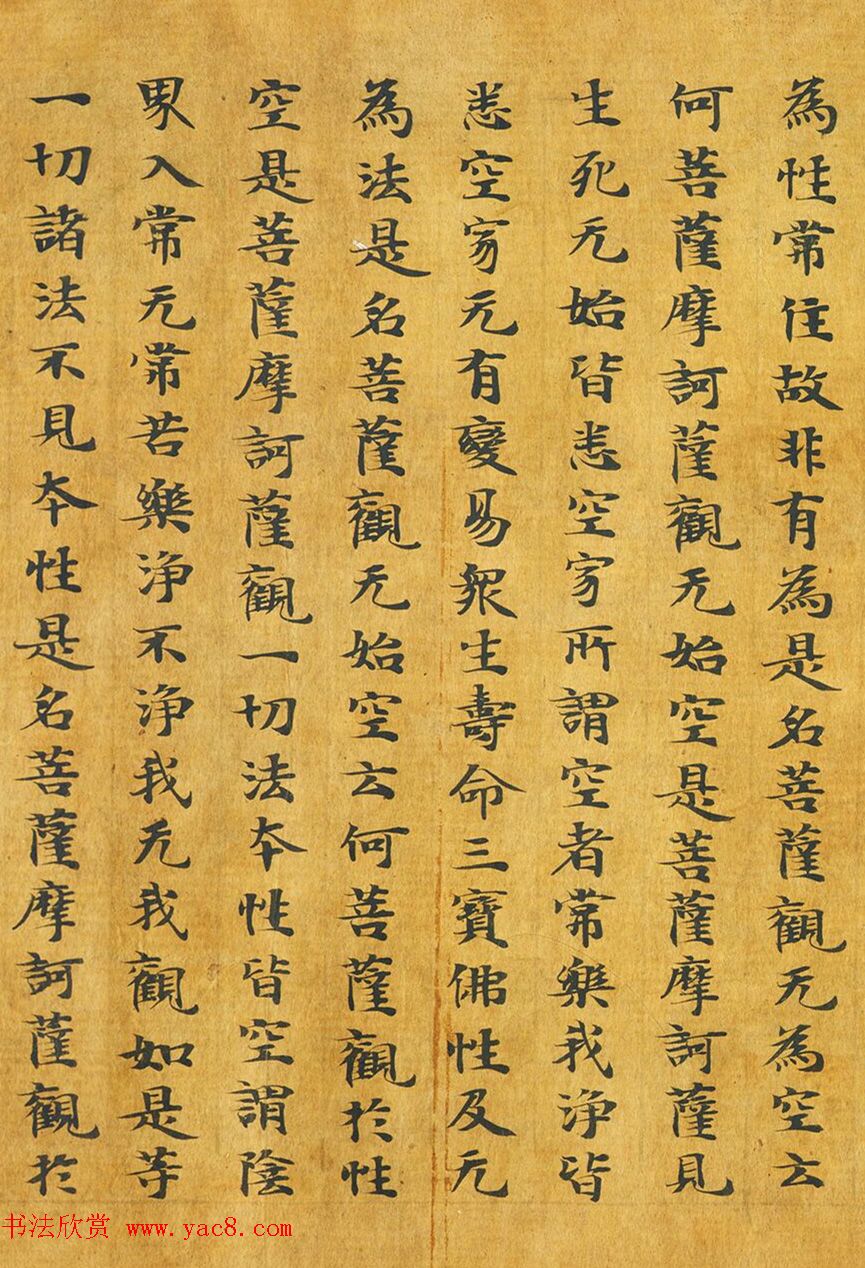 為性常住故非有為是名菩薩觀无為空云
何菩薩摩訶薩觀无始空是菩薩摩訶薩見
生死无始皆悉空寂所謂空者常樂我淨皆
悉空寂无有變易衆生壽命三寶佛性及无
為法是名菩薩觀无始空云何菩薩觀於性
空是菩薩摩訶薩觀一切法本性皆空謂陰
界入常无常苦樂淨不淨我无我觀如是等
一切諸法不見本性是名菩薩摩訶薩觀於
书法欣赏 www.yac8.com